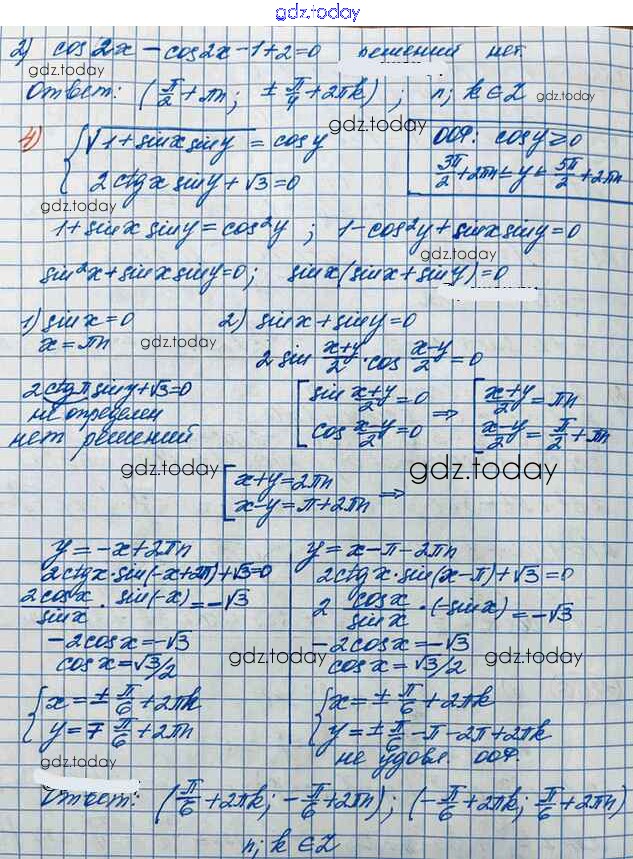 gdz.today
2) cos2x - cos2x - 1 + 2 = 0 решений нет.
gdz.today
Ответ: (π/2 + πn; ± π/4 + 2πk); n; k ∈ Z gdz.today
4) { √(1 + sinx siny) = cosy
2ctgx siny + √3 = 0
gdz.today
ООФ: cosy ≥ 0
3π/2 + 2πn ≤ y ≤ 5π/2 + 2πn
gdz.today
1 + sinx siny = cos²y; 1 - cos²y + sinx siny = 0
gdz.today
sin²x + sinx siny = 0; sinx(sinx + siny) = 0
gdz.today
1) sinx = 0
x = πn gdz.today
2ctgπ siny + √3 = 0
не определен
нет решений
2) sinx + siny = 0
2 sin (x+y)/2 · cos (x-y)/2 = 0
[ sin (x+y)/2 = 0
cos (x-y)/2 = 0
⇒ [ (x+y)/2 = πn
(x-y)/2 = π/2 + πn
gdz.today
[ x + y = 2πn
x - y = π + 2πn ⇒
gdz.today
y = -x + 2πn
2ctgx · sin(-x + 2π) + √3 = 0
2cosx/sinx · sin(-x) = -√3
-2cosx = -√3
cosx = √3/2
{ x = ± π/6 + 2πk
y = ∓ π/6 + 2πn
gdz.today
y = x - π - 2πn
2ctgx · sin(x - π) + √3 = 0
2 cosx/sinx · (-sinx) = -√3
-2cosx = -√3
cosx = √3/2
gdz.today
gdz.today
{ x = ± π/6 + 2πk
y = ± π/6 - π - 2π + 2πk
не удовл. ООФ.
gdz.today
gdz.today
Ответ: (π/6 + 2πk; -π/6 + 2πn); (-π/6 + 2πk; π/6 + 2πn)
n; k ∈ Z